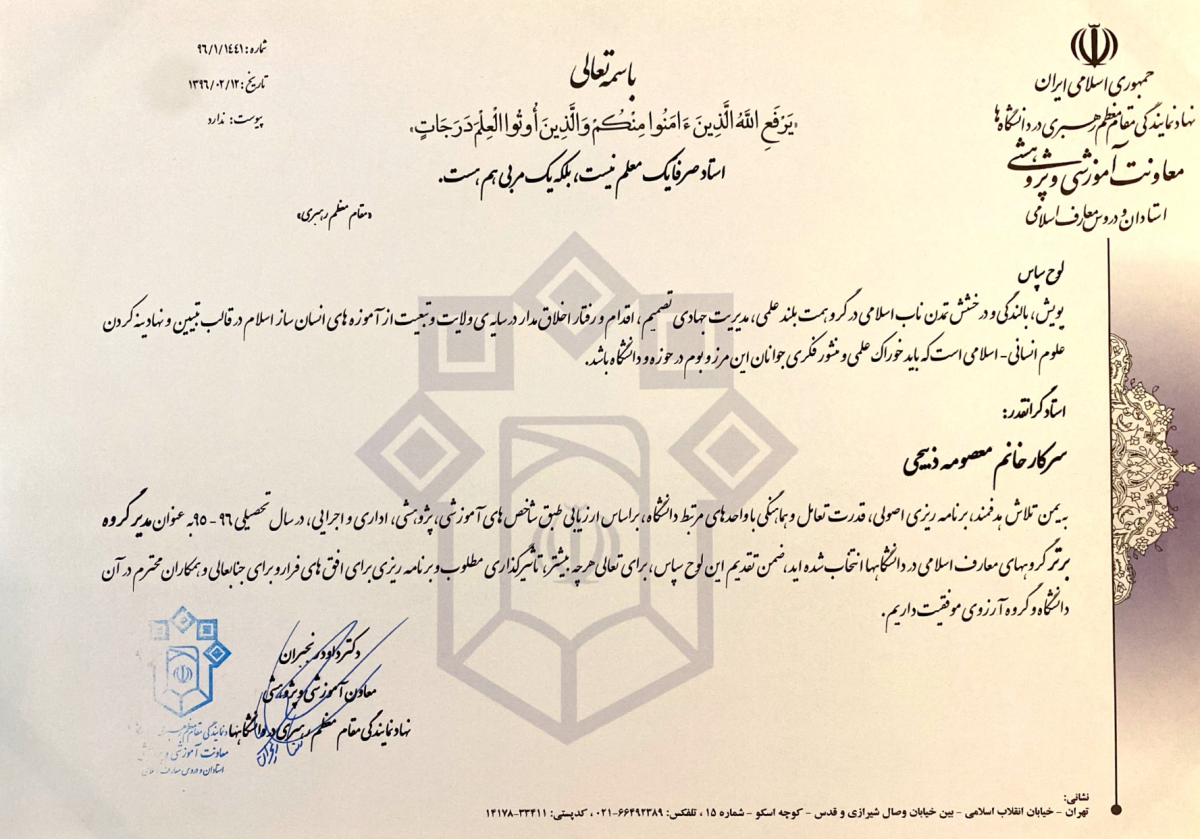 جمهوری اسلامی ایران
نهاد نمایندگی مقام معظم رهبری در دانشگاه‌ها
معاونت آموزشی و پژوهشی
استادان و دروس معارف اسلامی
شماره: ۹۶/۱/۱۴۴۱
تاریخ: ۱۳۹۶/۰۲/۱۲
پیوست: ندارد
باسمه تعالی
«يَرْفَعِ اللَّهُ الَّذِينَ ءَامَنُوا مِنْكُمْ وَالَّذِينَ أُوتُوا الْعِلْمَ دَرَجَاتٍ»
استاد صرفا یک معلم نیست، بلکه یک مربی هم هست.
«مقام معظم رهبری»
لوح سپاس
پویش، بالندگی و درخشش تمدن ناب اسلامی در گرو همت بلند علمی، مدیریت جهادی تصمیم، اقدام و رفتار اخلاق مدار در سایه ی ولایت و تبعیت از آموزه های انسان ساز اسلام در قالب تبیین و نهادینه کردن
علوم انسانی - اسلامی است که باید خوراک علمی و منشور فکری جوانان این مرز و بوم در حوزه و دانشگاه باشد.
استاد گرانقدر:
سرکار خانم معصومه ذبیحی
به یمن تلاش هدفمند، برنامه ریزی اصولی، قدرت تعامل و هماهنگی با واحدهای مرتبط دانشگاه، براساس ارزیابی طبق شاخص های آموزشی، پژوهشی، اداری و اجرایی، در سال تحصیلی ۹۶ - ۹۵ به عنوان مدیر گروه
برتر گروههای معارف اسلامی در دانشگاهها انتخاب شده اید، ضمن تقدیم این لوح سپاس، برای تعالی هرچه بیشتر، تأثیرگذاری مطلوب و برنامه ریزی برای افق های فرارو برای جنابعالی و همکاران محترم در آن
دانشگاه و گروه آرزوی موفقیت داریم.
دکتر داود رنجبران
معاون آموزشی و پژوهشی
نهاد نمایندگی مقام معظم رهبری در دانشگاهها
نمایندگی مقام معظم رهبری
معاونت آموزشی و
استادان و دروس معارف
نشانی:
تهران - خیابان انقلاب اسلامی - بین خیابان وصال شیرازی و قدس - کوچه اسکو - شماره ۱۵ ، تلفکس: ۶۶۴۹۲۳۸۹-۰۲۱ ، کدپستی: ۳۳۴۱۱-۱۴۱۷۸